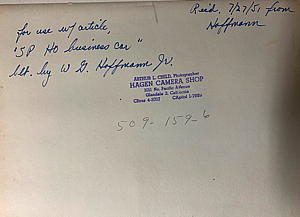 Recd. 7/27/51 from
Hoffmann
for use w/ article,
"SP HO business car"
blt. by W. G. Hoffmann Jr.
ARTHUR L. CHILD, Photographer
HAGEN CAMERA SHOP
No. Pacific Avenue
Glendale 2, California
CItrus 4-3217
509-159-6